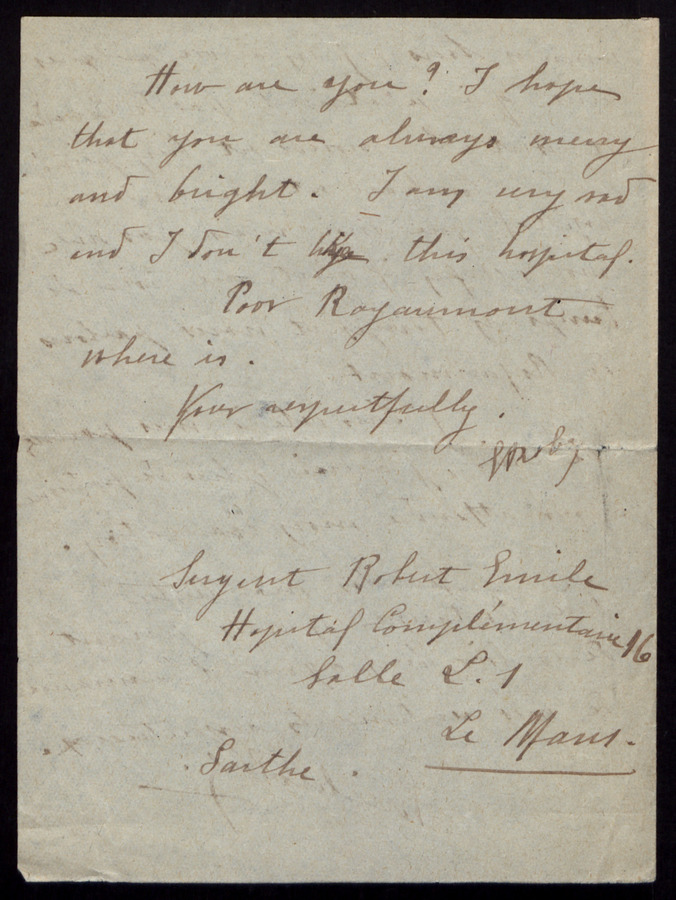 How are you? I hope
that you are always merry
and bright. I am very sad
and I don't like this hospital.
Poor Royaumont
where is.
Your respectfully.
Sergent Robert Emile
Hopital Complémentaire 16
Salle L. 1
Le Mans.
Sarthe.